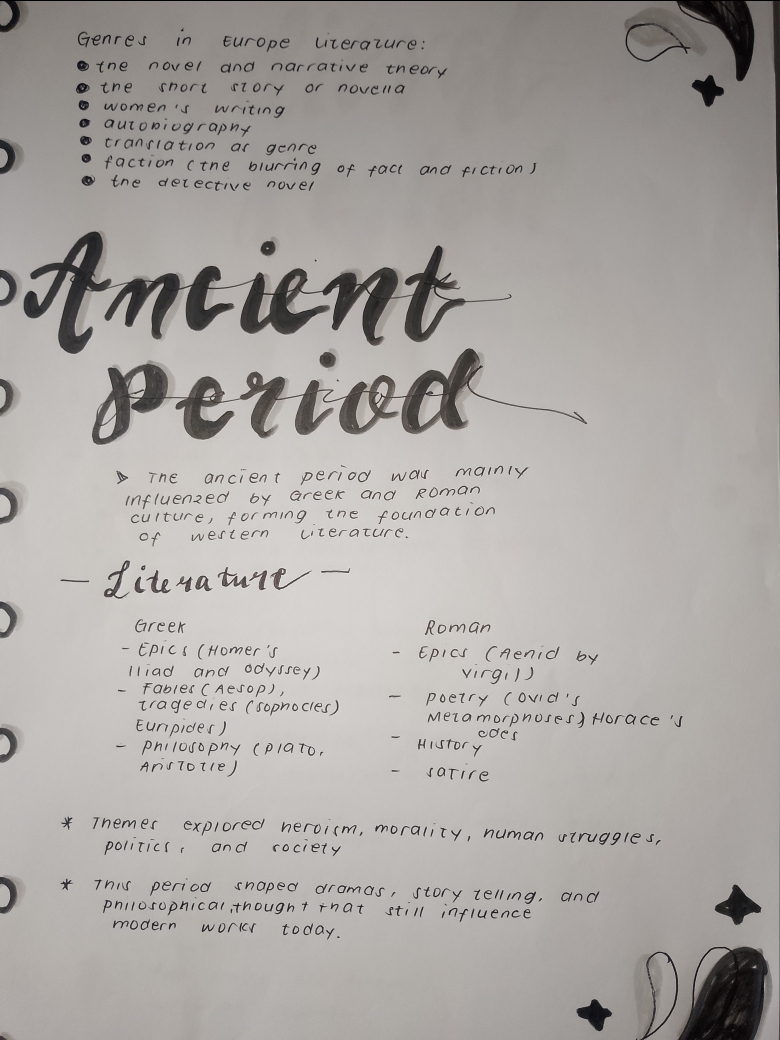 Genres in Europe Literature:
• the novel and narrative theory
• the short story or novella
• women's writing
• autobiography
• translation as genre
• faction (the blurring of fact and fiction)
• the detective novel
Ancient
Period
The ancient period was mainly
influenzed by Greek and Roman
culture, forming the foundation
of western literature.
— Literature —
Greek
- Epics (Homer's
Iliad and Odyssey)
- Fables (Aesop),
tragedies (sophocles)
Euripides)
- Philosophy (Plato,
Aristotle)
Roman
- Epics (Aenid by
virgil)
- Poetry (Ovid's
Metamorphoses) Horace's
odes
- History
- satire
* Themes explored heroism, morality, human struggles,
politics, and society
* This period shaped dramas, story telling, and
philosophical, thought that still influence
modern works today.